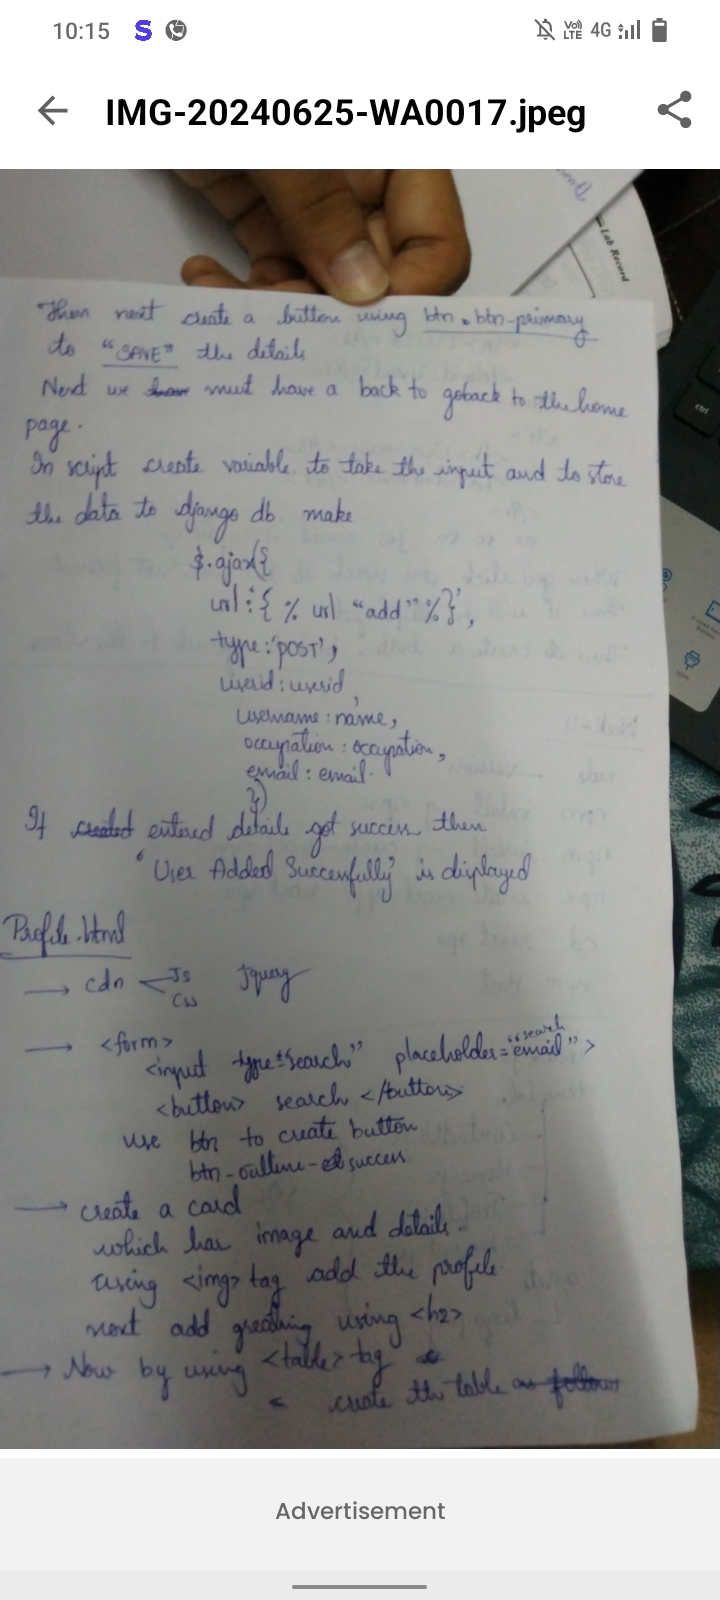 10:15 S Vo) LTE 4G
IMG-20240625-WA0017.jpeg
Lab Record
ctrl
Then next create a button using btn. btn-primary
to "SAVE" the details
Next we have must have a back to goback to the home
page.
In script create variable to take the input and to store
the data to django db make
$.ajax({
url:'{% url "add" %}',
type:'POST',
userid: userid,
username: name,
occupation: occupation,
email: email.
})
If created entered details got success then
'User Added Successfully' is displayed
Profile.html
→ cdn < Js Jquery
Css
→ <form>
<input type="search" placeholder="search email">
<button> search </button>
use btn to create button
btn-outline-success
→ create a card
which has image and details.
using <img> tag add the profile
next add greating using <h2>
→ Now by using <table> tag
create the table as follows
Advertisement